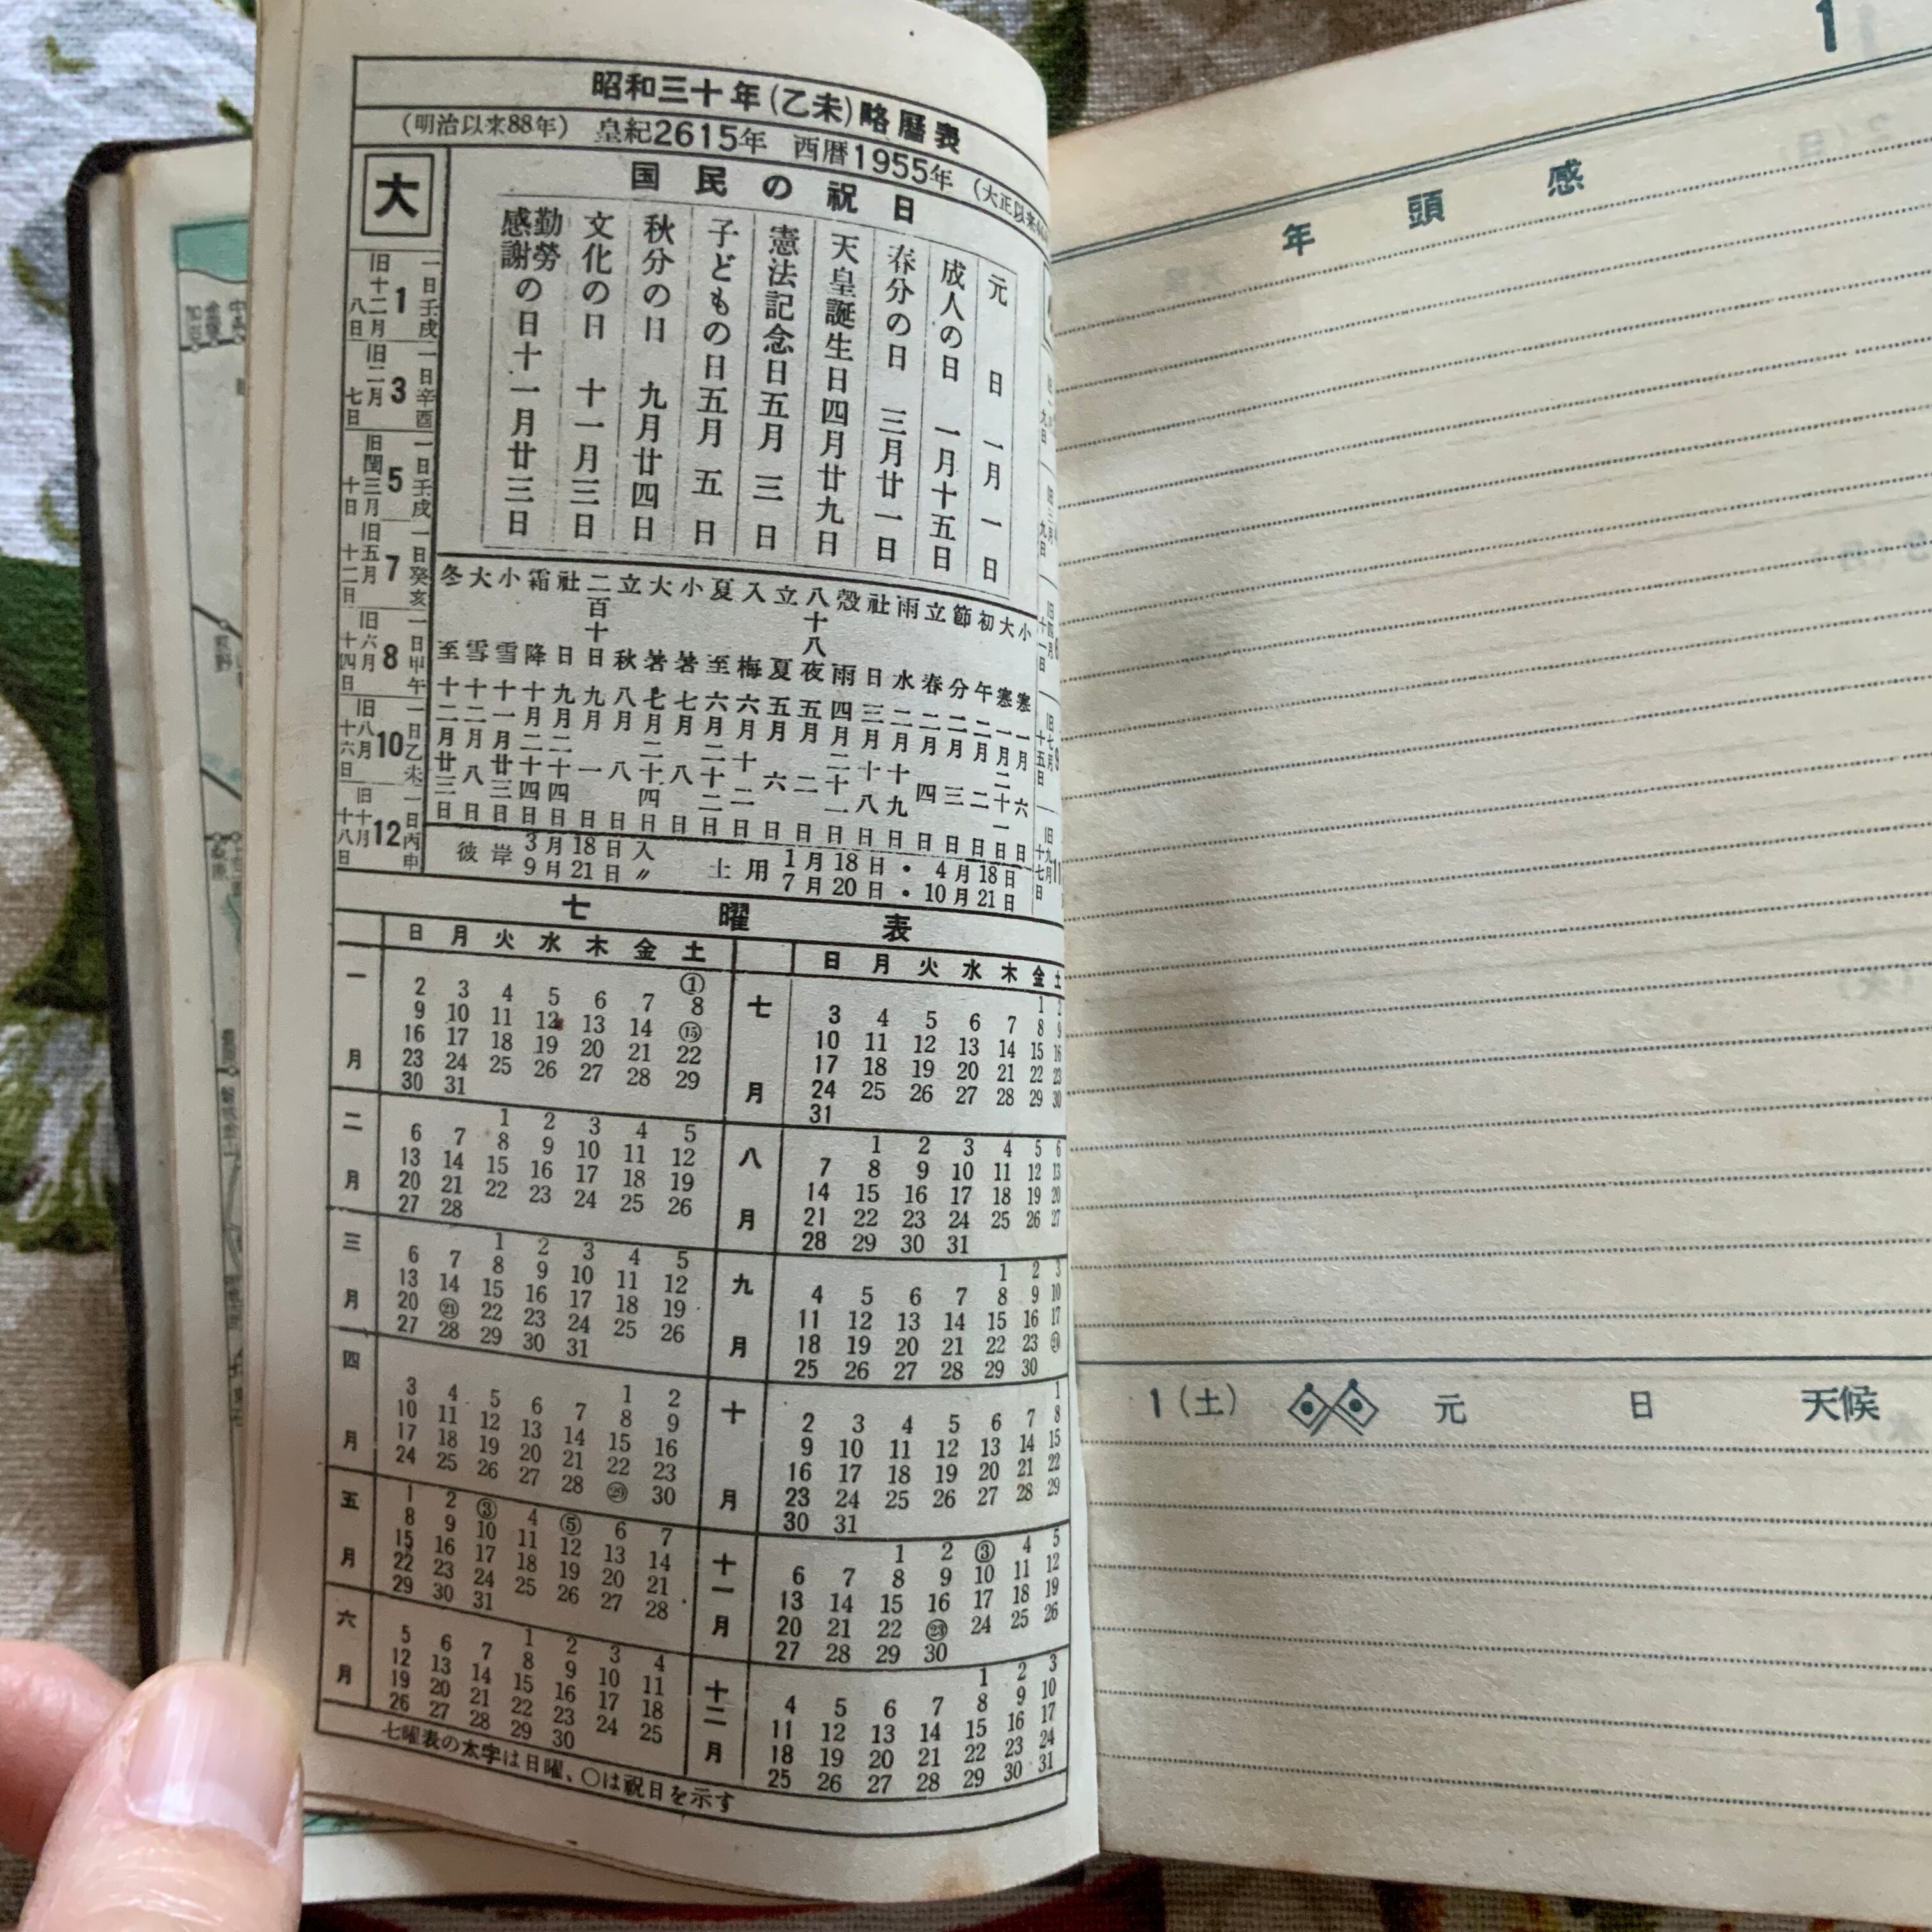 昭和三十年(乙未)略暦表
(明治以来88年) 皇紀2615年 西暦1955年 (大正以来
大
国民の祝日
元日 一月一日
成人の日 一月十五日
春分の日 三月廿一日
天皇誕生日 四月廿九日
憲法記念日 五月三日
子どもの日 五月五日
秋分の日 九月廿四日
文化の日 十一月三日
勤労感謝の日 十一月廿三日
1 一日壬戌 旧十二月八日
3 一日辛酉 旧二月七日
5 一日壬戌 旧閏三月十日
7 一日癸亥 旧五月十二日
8 一日甲午 旧六月十四日
10 一日乙未 旧八月十六日
12 一日丙申 旧十月十八日
小寒 一月六日
大寒 一月二十一日
初午 二月二日
節分 二月三日
立春 二月四日
雨水 二月十九日
社日 三月十八日
穀雨 四月二十一日
八十八夜 五月二日
立夏 五月六日
入梅 六月十二日
夏至 六月二十二日
小暑 七月八日
大暑 七月二十四日
立秋 八月八日
二百十日 九月一日
社日 九月二十四日
霜降 十月二十四日
小雪 十一月廿三日
大雪 十二月八日
冬至 十二月廿三日
彼岸 3月18日入
9月21日〃
土用 1月18日・4月18日
7月20日・10月21日
七曜表
日 月 火 水 木 金 土
一月
①
2 3 4 5 6 7 8
9 10 11 12 13 14 ⑮
16 17 18 19 20 21 22
23 24 25 26 27 28 29
30 31
二月
1 2 3 4 5
6 7 8 9 10 11 12
13 14 15 16 17 18 19
20 21 22 23 24 25 26
27 28
三月
1 2 3 4 5
6 7 8 9 10 11 12
13 14 15 16 17 18 19
20 ㉑ 22 23 24 25 26
27 28 29 30 31
四月
1 2
3 4 5 6 7 8 9
10 11 12 13 14 15 16
17 18 19 20 21 22 23
24 25 26 27 28 ㉙ 30
五月
1 2 ③ 4 ⑤ 6 7
8 9 10 11 12 13 14
15 16 17 18 19 20 21
22 23 24 25 26 27 28
29 30 31
六月
1 2 3 4
5 6 7 8 9 10 11
12 13 14 15 16 17 18
19 20 21 22 23 24 25
26 27 28 29 30
日 月 火 水 木 金 土
七月
1 2
3 4 5 6 7 8 9
10 11 12 13 14 15 16
17 18 19 20 21 22 23
24 25 26 27 28 29 30
31
八月
1 2 3 4 5 6
7 8 9 10 11 12 13
14 15 16 17 18 19 20
21 22 23 24 25 26 27
28 29 30 31
九月
1 2 3
4 5 6 7 8 9 10
11 12 13 14 15 16 17
18 19 20 21 22 23 ㉔
25 26 27 28 29 30
十月
1
2 3 4 5 6 7 8
9 10 11 12 13 14 15
16 17 18 19 20 21 22
23 24 25 26 27 28 29
30 31
十一月
1 2 ③ 4 5
6 7 8 9 10 11 12
13 14 15 16 17 18 19
20 21 22 ㉓ 24 25 26
27 28 29 30
十二月
1 2 3
4 5 6 7 8 9 10
11 12 13 14 15 16 17
18 19 20 21 22 23 24
25 26 27 28 29 30 31
七曜表の太字は日曜、○は祝日を示す
1
年頭感
1(土) 元日 天候